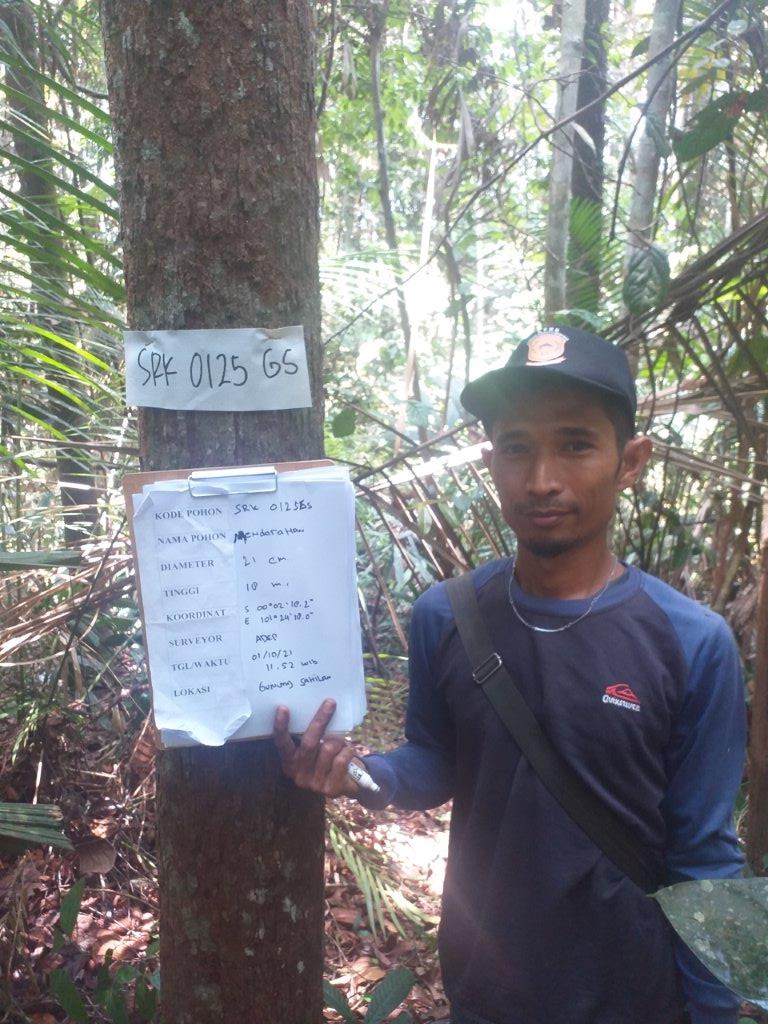 SRK 0125 GS
KODE POHON SRK 0125GS
NAMA POHON Mendarahan
DIAMETER 21 cm
TINGGI 18 m.
KOORDINAT S 00°02'18.2"
E 101°24'18.0"
SURVEYOR ADEP
TGL/WAKTU 01/10/21
11.52 WIB
LOKASI Gunung Sahilan
QUIKSILVER